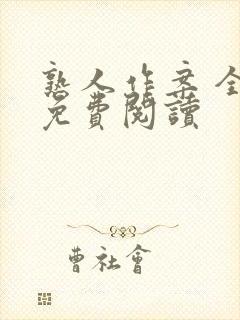 熟人作案全
免費閱讀
曹社會